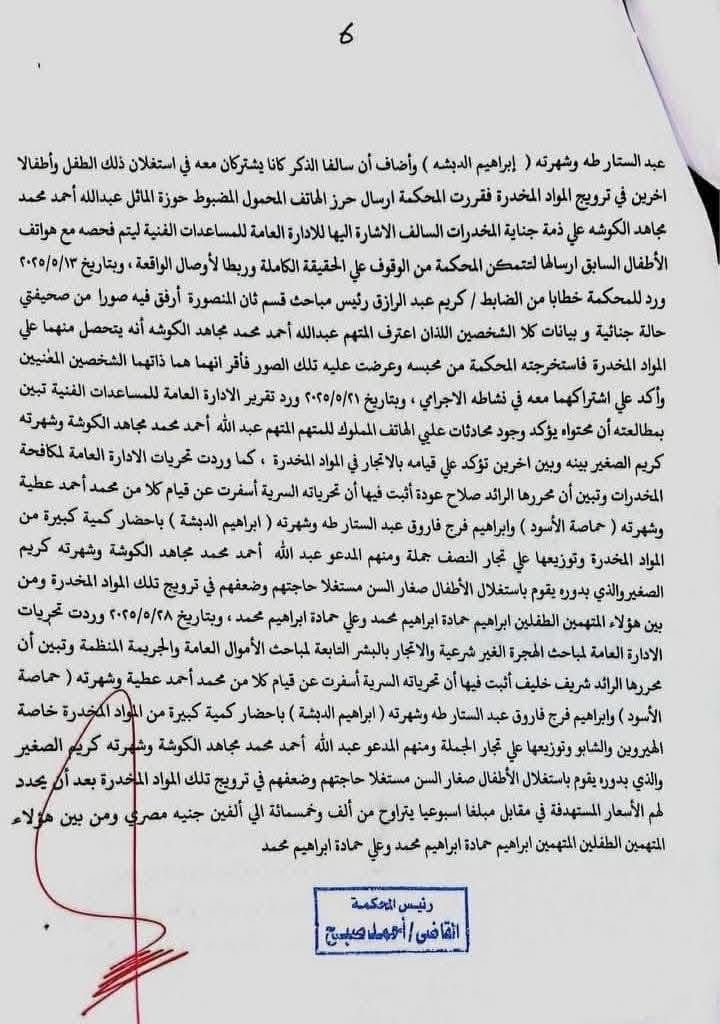 6
عبد الستار طه وشهرته ( إبراهيم الدبشه ) وأضاف أن سالفا الذكر كانا يشتركان معه في استغلان ذلك الطفل وأطفالا
اخرين في ترويج المواد المخدرة فقررت المحكمة ارسال حرز الهاتف المحمول المضبوط حوزة المائل عبدالله أحمد محمد
مجاهد الكوشه علي ذمة جناية المخدرات السالف الاشارة اليها للادارة العامة للمساعدات الفنية ليتم فحصه مع هواتف
الأطفال السابق ارسالها لتتمكن المحكمة من الوقوف علي الحقيقة الكاملة وربطا لأوصال الواقعة ، وبتاريخ ٢٠٢٥/٥/١٣
ورد للمحكمة خطابا من الضابط / كريم عبد الرازق رئيس مباحث قسم ثان المنصورة أرفق فيه صورا من صحيفتي
حالة جنائية و بيانات كلا الشخصين اللذان اعترف المتهم عبدالله أحمد محمد مجاهد الكوشه أنه يتحصل منهما علي
المواد المخدرة فاستخرجته المحكمة من محبسه وعرضت عليه تلك الصور فأقر انهما هما ذاتهما الشخصين المعنيين
وأكد علي اشتراكهما معه في نشاطه الاجرامي ، وبتاريخ ٢٠٢٥/٥/٢١ ورد تقرير الادارة العامة للمساعدات الفنية تبين
بمطالعته أن محتواه يؤكد وجود محادثات علي الهاتف المملوك للمتهم المتهم عبد الله أحمد محمد مجاهد الكوشة وشهرته
كريم الصغير بينه وبين اخرين تؤكد علي قيامه بالاتجار في المواد المخدرة ، كما وردت تحريات الادارة العامة لمكافحة
المخدرات وتبين أن محررها الرائد صلاح عودة أثبت فيها أن تحرياته السرية أسفرت عن قيام كلا من محمد أحمد عطية
وشهرته ( حماصة الأسود ) وابراهيم فرج فاروق عبد الستار طه وشهرته ( ابراهيم الدبشة ) باحضار كمية كبيرة من
المواد المخدرة وتوزيعها علي تجار النصف جملة ومنهم المدعو عبد الله أحمد محمد مجاهد الكوشة وشهرته كريم
الصغيروالذي بدوره يقوم باستغلال الأطفال صغار السن مستغلا حاجتهم وضعفهم في ترويج تلك المواد المخدرة ومن
بين هؤلاء المتهمين الطفلين ابراهيم حمادة ابراهيم محمد وعلي حمادة ابراهيم محمد ، وبتاريخ ٢٠٢٥/٥/٢٨ وردت تحريات
الادارة العامة لمباحث الهجرة الغير شرعية والاتجار بالبشر التابعة لمباحث الأموال العامة والجريمة المنظمة وتبين أن
محررها الرائد شريف خليف أثبت فيها أن تحرياته السرية أسفرت عن قيام كلا من محمد أحمد عطية وشهرته ( حماصة
الأسود ) وابراهيم فرج فاروق عبد الستار طه وشهرته ( ابراهيم الدبشة ) باحضار كمية كبيرة من المواد المخدرة خاصة
الهيروين والشابو وتوزيعها علي تجار الجملة ومنهم المدعو عبد الله أحمد محمد مجاهد الكوشة وشهرته كريم الصغير
والذي بدوره يقوم باستغلال الأطفال صغار السن مستغلا حاجتهم وضعفهم في ترويج تلك المواد المخدرة بعد أن يحدد
لهم الأسعار المستهدفة في مقابل مبلغا اسبوعيا يتراوح من ألف وخمسمائة الي ألفين جنيه مصري ومن بين هؤلاء
المتهمين الطفلين المتهمين ابراهيم حمادة ابراهيم محمد وعلي حمادة ابراهيم محمد
رئيس المحكمة
القاضى/أحمد صبيح